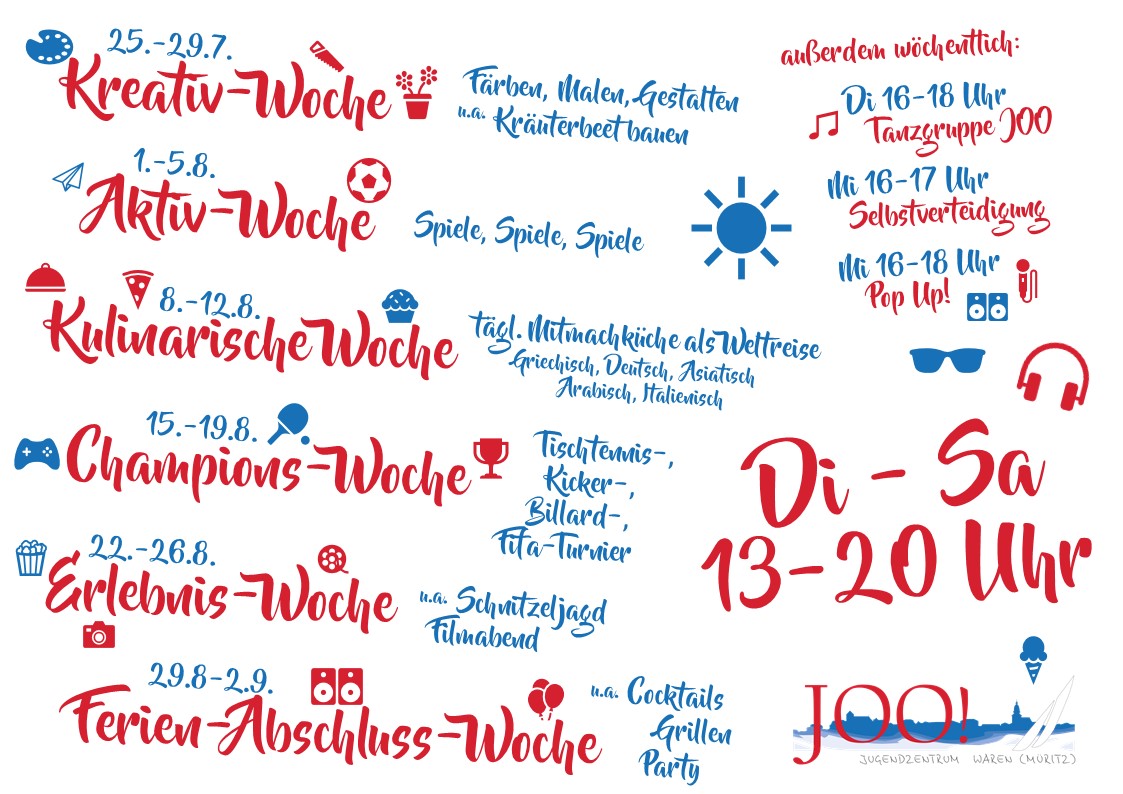 25.-29.7.
Kreativ-Woche
Färben, Malen, Gestalten
u.a. Kräuterbeet bauen
1.-5.8.
Aktiv-Woche
Spiele, Spiele, Spiele
8.-12.8.
Kulinarische Woche
tägl. Mitmachküche als Weltreise
Griechisch, Deutsch, Asiatisch
Arabisch, Italienisch
15.-19.8.
Champions-Woche
Tischtennis-,
Kicker-,
Billard-,
Fifa-Turnier
22.-26.8.
Erlebnis-Woche
u.a. Schnitzeljagd
Filmabend
29.8-2.9.
Ferien-Abschluss-Woche
u.a. Cocktails
Grillen
Party
außerdem wöchentlich:
Di 16-18 Uhr
Tanzgruppe JOO
Mi 16-17 Uhr
Selbstverteidigung
Mi 16-18 Uhr
Pop Up!
Di - Sa
13-20 Uhr
JOO!
JUGENDZENTRUM WAREN (MÜRITZ)